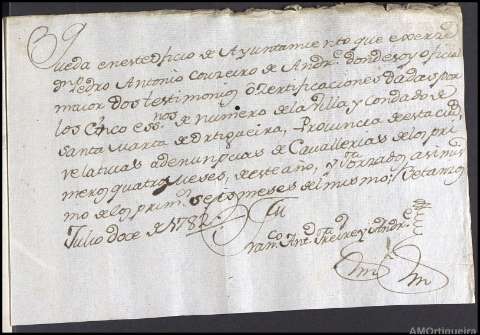 Queda en este oficio de Ayuntamiento que exerze
dn. Pedro Antonio Coureiro de Andre. donde soy oficial
maior dos testimonios o Zertificaciones dadas por
los Cinco essnos. de numero de la Villa y Condado de
Santa Marta de Ortigueira, Provincia de esta ciud.
relatiuas a denunzias de Cavallerias de los pri
meros quatro meses, de este año, y
mo de los prim. seis meses del mismo;
Julio doce de 1782
Franco. Anto. Freire y Andre.
AMOrtigueira